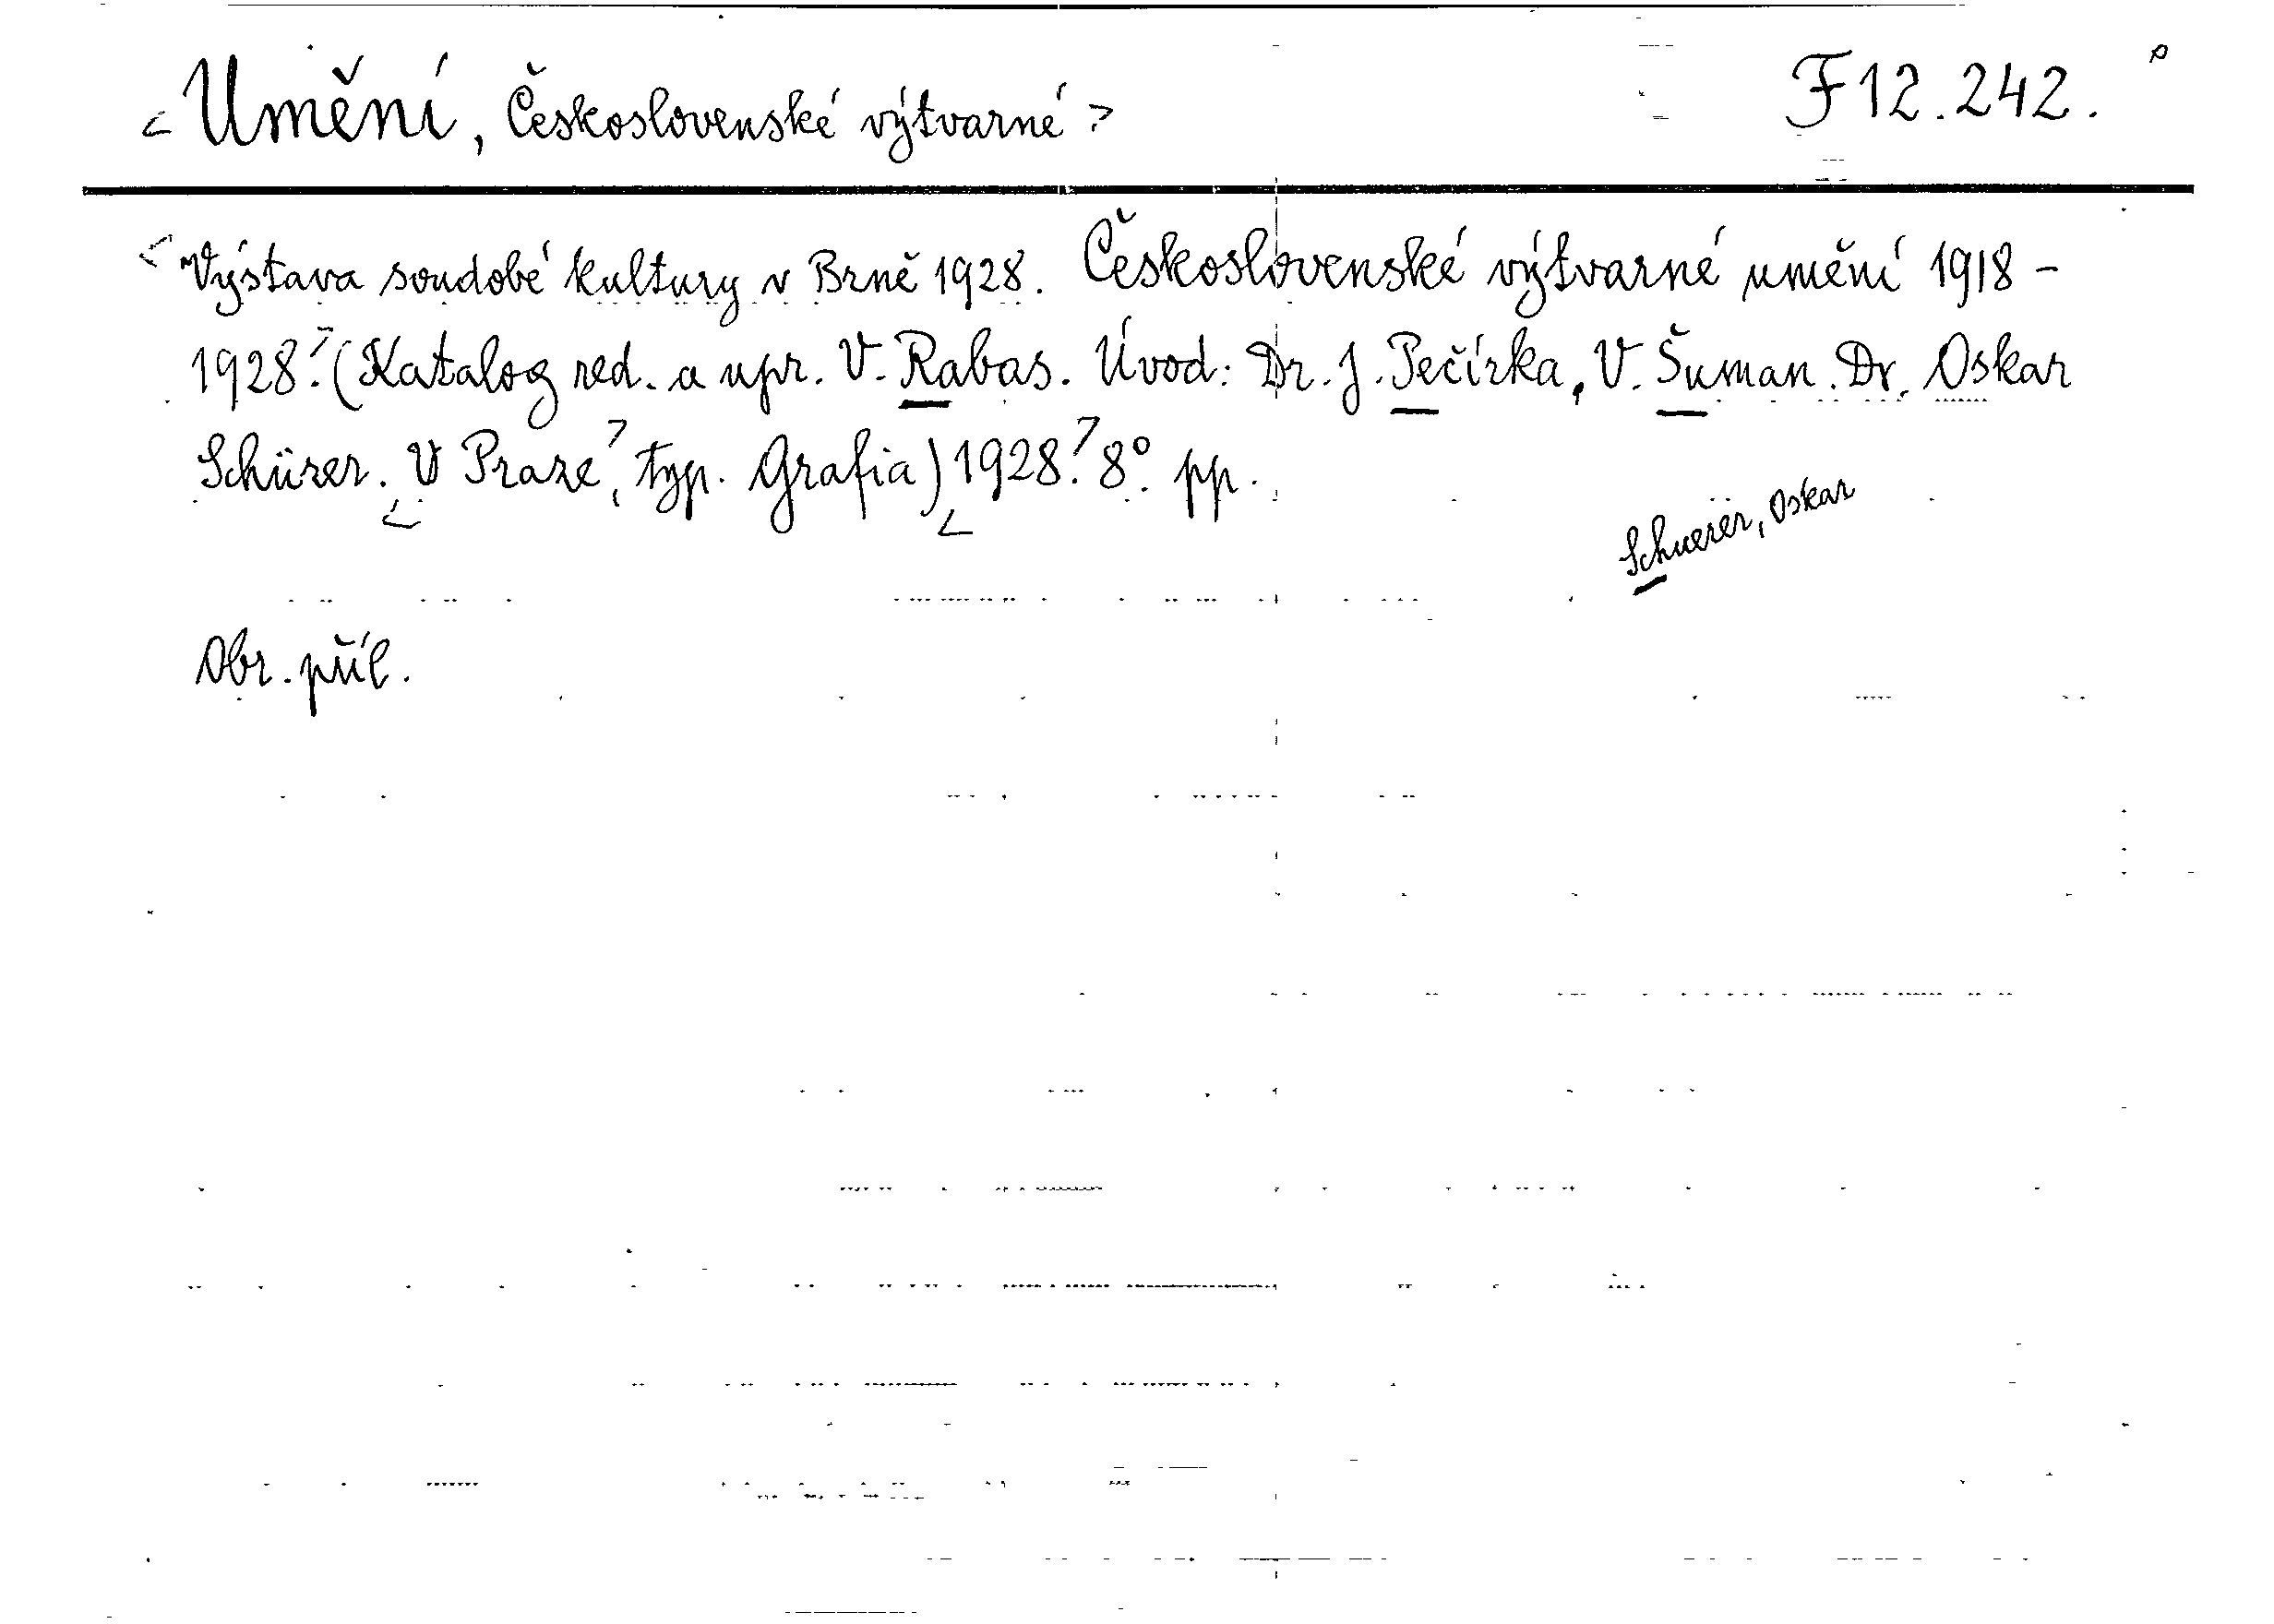 < Umění, Československé výtvarné > F 12.242.
Výstava soudobé kultury v Brně 1928. Československé výtvarné umění 1918 -
1928. (Katalog red. a upr. V. Rabas. Úvod: Dr. J. Pečírka, V. Šuman. Dr. Oskar
Schürer. V Praze, typ. Grafia) 1928. 8° pp.
Schuerer, Oskar
Obr. příl.